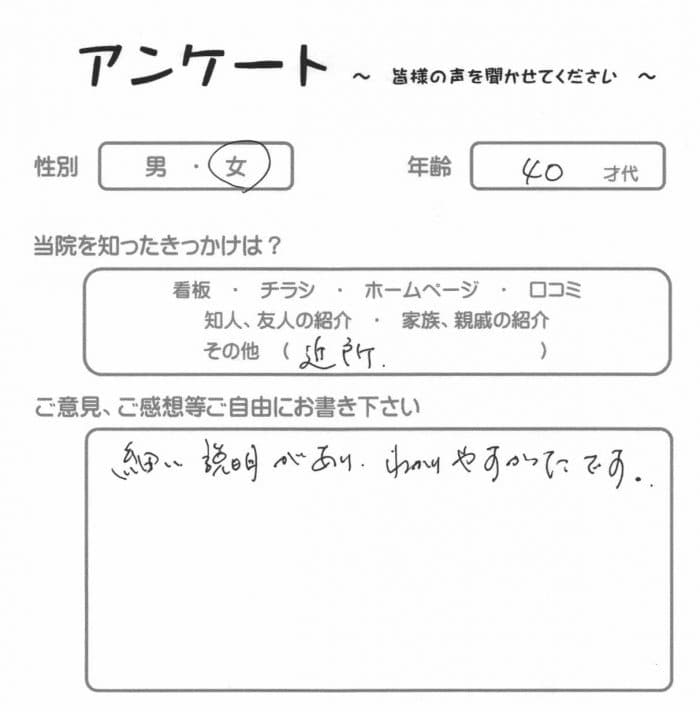 アンケート ～ 皆様の声を聞かせてください ～
性別 男 ・ 女 年齢 40 才代
当院を知ったきっかけは？
看板 ・ チラシ ・ ホームページ ・ 口コミ
知人、友人の紹介 ・ 家族、親戚の紹介
その他 （ 近所. ）
ご意見、ご感想等ご自由にお書き下さい
細い説明があり、わかりやすかったです。